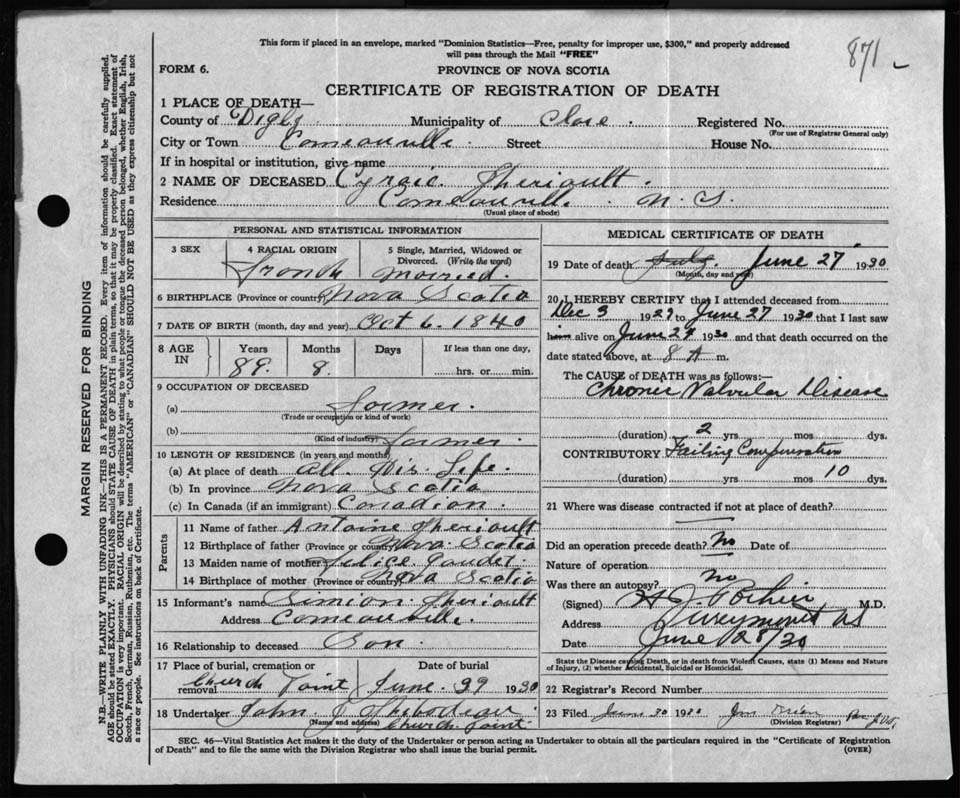 This form if placed in an envelope, marked "Dominion Statistics—Free, penalty for improper use, $300," and properly addressed
will pass through the Mail "FREE"
871
FORM 6.
PROVINCE OF NOVA SCOTIA
CERTIFICATE OF REGISTRATION OF DEATH
1 PLACE OF DEATH—
County of Digby Municipality of Clare Registered No.
(For use of Registrar General only)
City or Town Comeauville Street House No.
If in hospital or institution, give name
2 NAME OF DECEASED Theriault
Residence Comeauville N. S.
(Usual place of abode)
PERSONAL AND STATISTICAL INFORMATION
3 SEX 4 RACIAL ORIGIN 5 Single, Married, Widowed or
Divorced. (Write the word)
French Married
6 BIRTHPLACE (Province or country) Nova Scotia
7 DATE OF BIRTH (month, day and year) Oct 6. 1840
8 AGE IN Years Months Days If less than one day,
89. 8. hrs. or min.
9 OCCUPATION OF DECEASED
(a) Farmer.
(Trade or occupation or kind of work)
(b) Farmer.
(Kind of industry)
10 LENGTH OF RESIDENCE (in years and months)
(a) At place of death All His Life.
(b) In province Nova Scotia
(c) In Canada (if an immigrant) Canadian.
Parents
11 Name of father Antoine Theriault
12 Birthplace of father (Province or country) Nova Scotia
13 Maiden name of mother Gaudet.
14 Birthplace of mother (Province or country) Nova Scotia
15 Informant's name Simion Theriault
Address Comeauville.
16 Relationship to deceased Son.
17 Place of burial, cremation or removal Date of burial
Church Point June 29 1930
18 Undertaker John Thibodeau
(Name and address) Church Point
MEDICAL CERTIFICATE OF DEATH
19 Date of death July. June 27 1930
(Month, day and year)
20 I HEREBY CERTIFY that I attended deceased from
Dec 3 1929 to June 27 1930 that I last saw
him alive on June 27 1930 and that death occurred on the
date stated above, at 8 A m.
The CAUSE of DEATH was as follows:—
Chronic Valvular Disease
(duration) 2 yrs. mos. dys.
CONTRIBUTORY Failing Compensation
(duration) yrs. mos. 10 dys.
21 Where was disease contracted if not at place of death?
Did an operation precede death? No Date of
Nature of operation
Was there an autopsy? No
(Signed) Pothier M.D.
Address Weymouth NS
Date June 28/30
State the Disease causing Death, or in death from Violent Causes, state (1) Means and Nature
of Injury, (2) whether Accidental, Suicidal or Homicidal.
22 Registrar's Record Number
23 Filed June 30 1930
(Division Registrar)
SEC. 46—Vital Statistics Act makes it the duty of the Undertaker or person acting as Undertaker to obtain all the particulars required in the "Certificate of Registration
of Death" and to file the same with the Division Registrar who shall issue the burial permit.
(OVER)
MARGIN RESERVED FOR BINDING
N.B.—WRITE PLAINLY WITH UNFADING INK—THIS IS A PERMANENT RECORD. Every item of information should be carefully supplied.
AGE should be stated EXACTLY. PHYSICIANS should STATE CAUSE OF DEATH in plain terms, so that it may be properly classified. Exact statement of
OCCUPATION is very important. RACIAL ORIGIN will be described by stating to what people or tongue the deceased person belonged, whether English, Irish,
Scotch, French, German, Russian, Ruthenian, etc. The terms "AMERICAN" or "CANADIAN" SHOULD NOT BE USED as they express citizenship but not
a race or people. See instructions on back of Certificate.